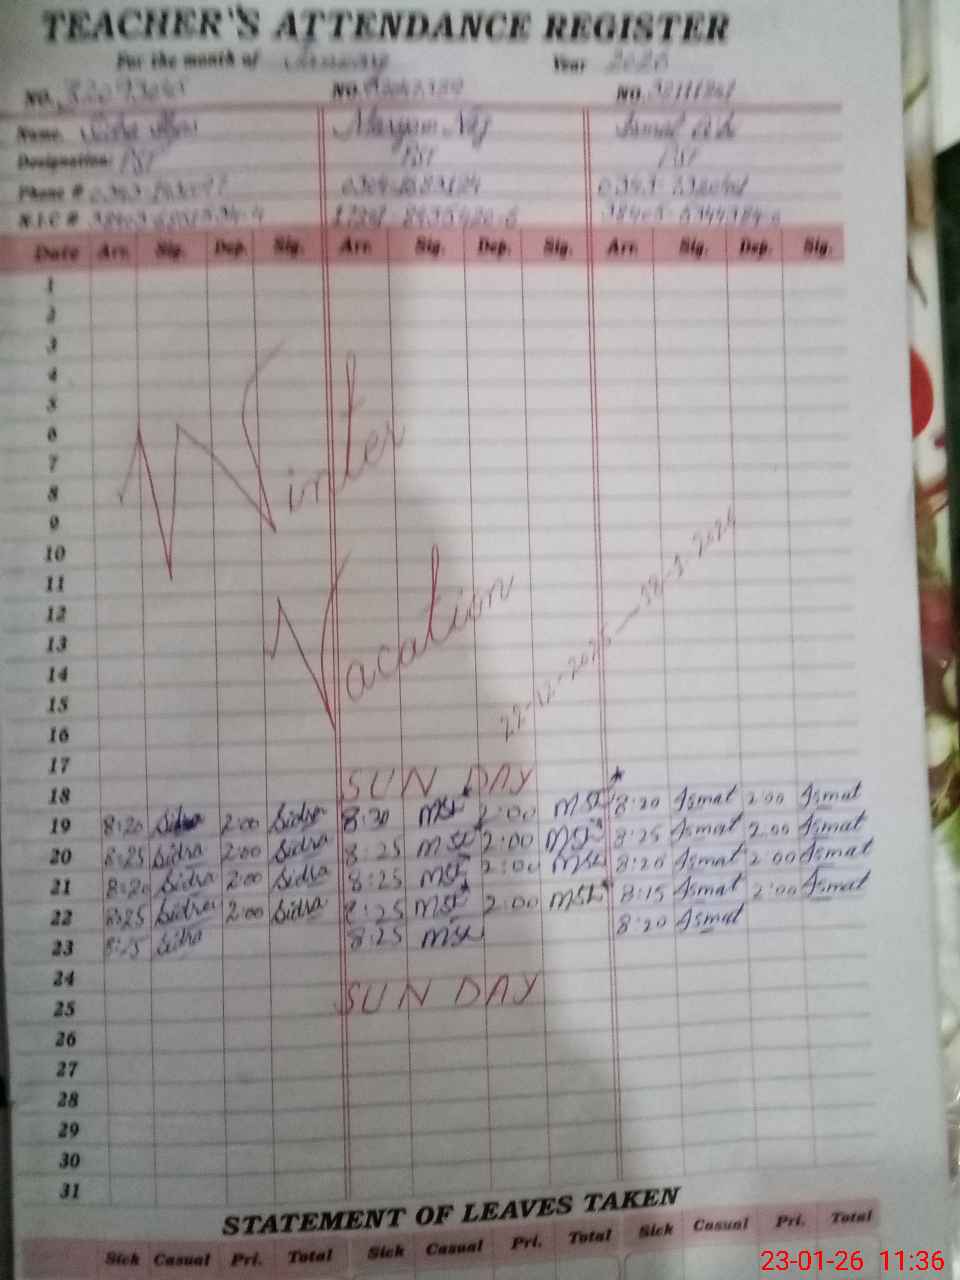 TEACHER'S ATTENDANCE REGISTER
For the month of January Year 2026
NO. NO. NO.
Name. Maryam Ismat
Designation: PST PST PST
Phone #
N.I.C #
Date Arr. Sig. Dep. Sig. Arr. Sig. Dep. Sig. Arr. Sig. Dep. Sig.
1
2
3
4
5
6
7
8
9
10
11
12
13
14
15
16
17
Winter
Vacation
22-12-2025
18 SUNDAY
19 8:20 Sidra 2:00 Sidra 8:30 MSK 2:00 MSK 8:20 Ismat 2:00 Ismat
20 8:25 Sidra 2:00 Sidra 8:25 MSK 2:00 MSK 8:25 Ismat 2:00 Ismat
21 8:20 Sidra 2:00 Sidra 8:25 MSK 2:00 MSK 8:20 Ismat 2:00 Ismat
22 8:25 Sidra 2:00 Sidra 8:25 MSK 2:00 MSK 8:15 Ismat 2:00 Ismat
23 8:25 Sidra 8:25 MSK 8:20 Ismat
24
25 SUNDAY
26
27
28
29
30
31
STATEMENT OF LEAVES TAKEN
Sick Casual Pri. Total Sick Casual Pri. Total Sick Casual Pri. Total
23-01-26 11:36